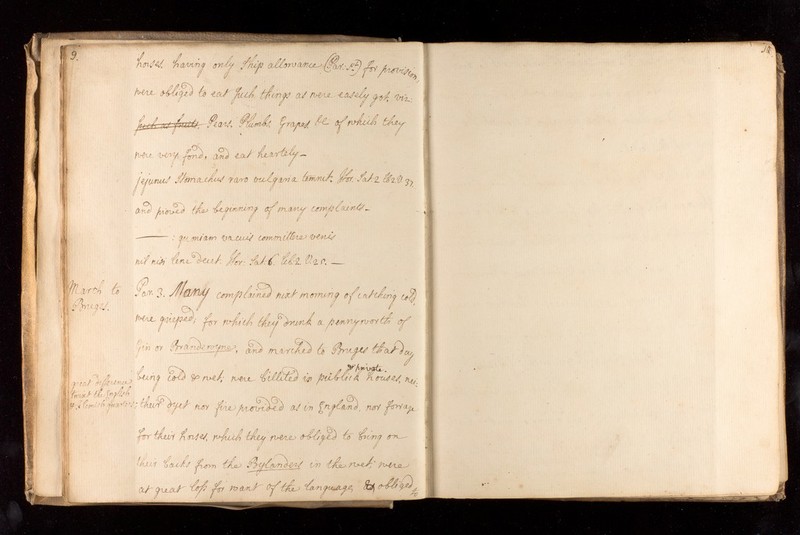 9.
horses having only ship allowance (Par. 2d) for provision,
were obliged to eat such things as were easily got, viz
such as fruits. Pears, Plumbs, Grapes &c of which they
were very fond, and eat heartely—
jejunus Stomachus raro vulgaria temnit. Hor. Sat 2 lib 2 V 37.
and proved the beginning of many complaints—
——: quoniam vacuis committere venis
nil nisi lene decet. Hor. Sat 6. lib 2 V 25. —
March to
Bruges.
Par. 3. Many complained next morning of catching cold,
were griped; for which they drunk a pennyworth of
Gin or Brandewyne, and marched to Bruges that day
being cold & wet, were billeted in publick houses, nei:
& private
great difference
twixt the English
& Flemish quarters
their dyet nor fire provided as in England, nor forrage
for their horses, which they were obliged to bring on
their backs from the Bylanders in the wet: were
at great loss for want of the language, & obliged